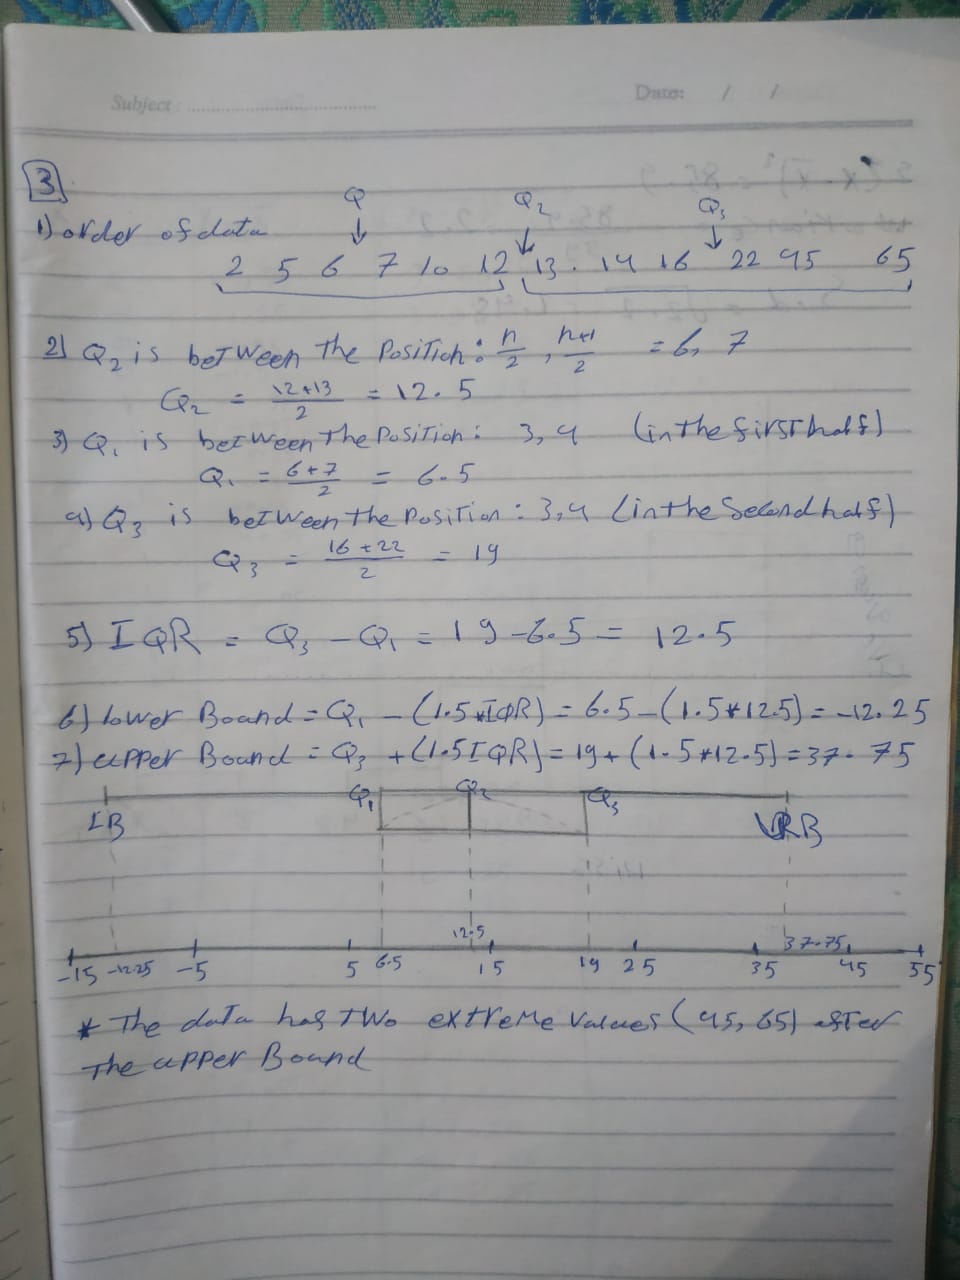 Subject : Date: / /
3
Q Q2 Q3
1) order of data
2 5 6 7 10 12 13 . 14 16 22 45 65
2) Q2 is between the Position : n/2 , n+1/2 = 6, 7
Q2 = 12+13/2 = 12.5
3) Q1 is between the Position : 3, 4 (in the first half)
Q1 = 6+7/2 = 6.5
4) Q3 is between the Position : 3, 4 (in the Second half)
Q3 = 16+22/2 = 19
5) IQR = Q3 - Q1 = 19 - 6.5 = 12.5
6) lower Bound = Q1 - (1.5*IQR) = 6.5 - (1.5*12.5) = -12.25
7) upper Bound = Q3 + (1.5IQR) = 19 + (1.5*12.5) = 37.75
Q1 Q2 Q3
LB B
12.5 37.75
-15 -12.25 -5 5 6.5 15 19 25 35 45 55
* The data has two extreme values (45, 65) after
the upper Bound